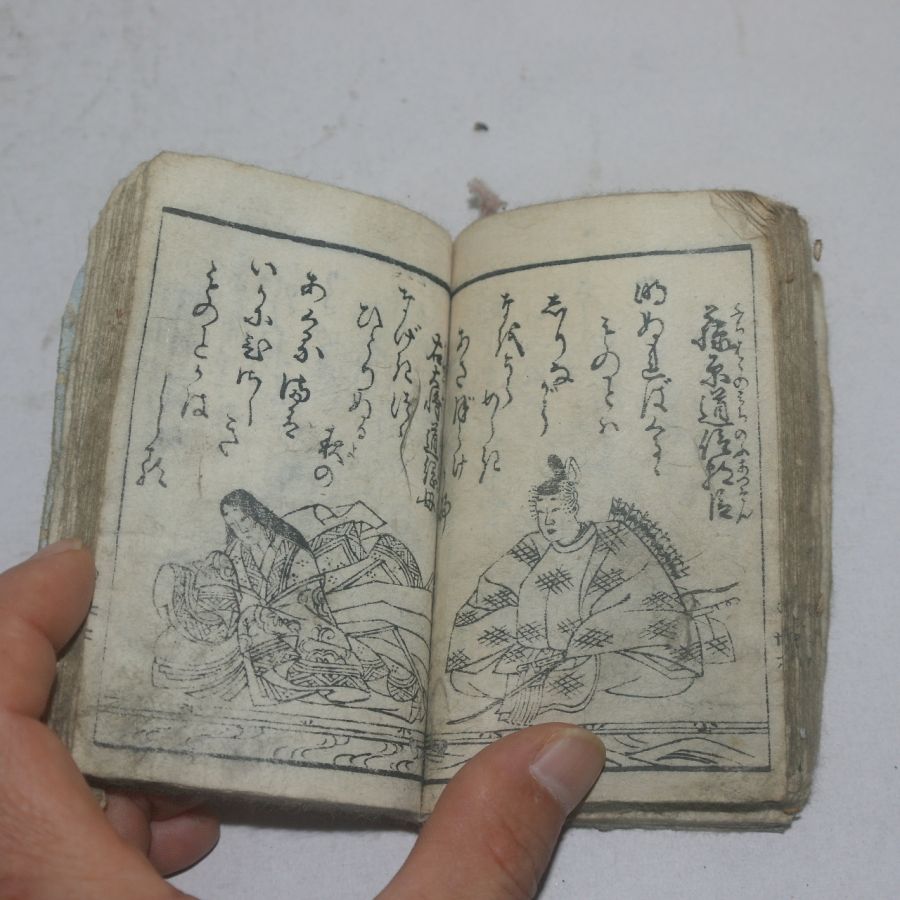 ふぢはらのみちのぶあつそん
藤原道信朝臣
明ぬればくるゝ
ものとは
しりながら
なをうら
めしき
あさぼらけ
かな
右大将道綱母
なげきつゝ
ひとりぬる
夜の
あくるまは
いかに久し
き
ものとかは
しる